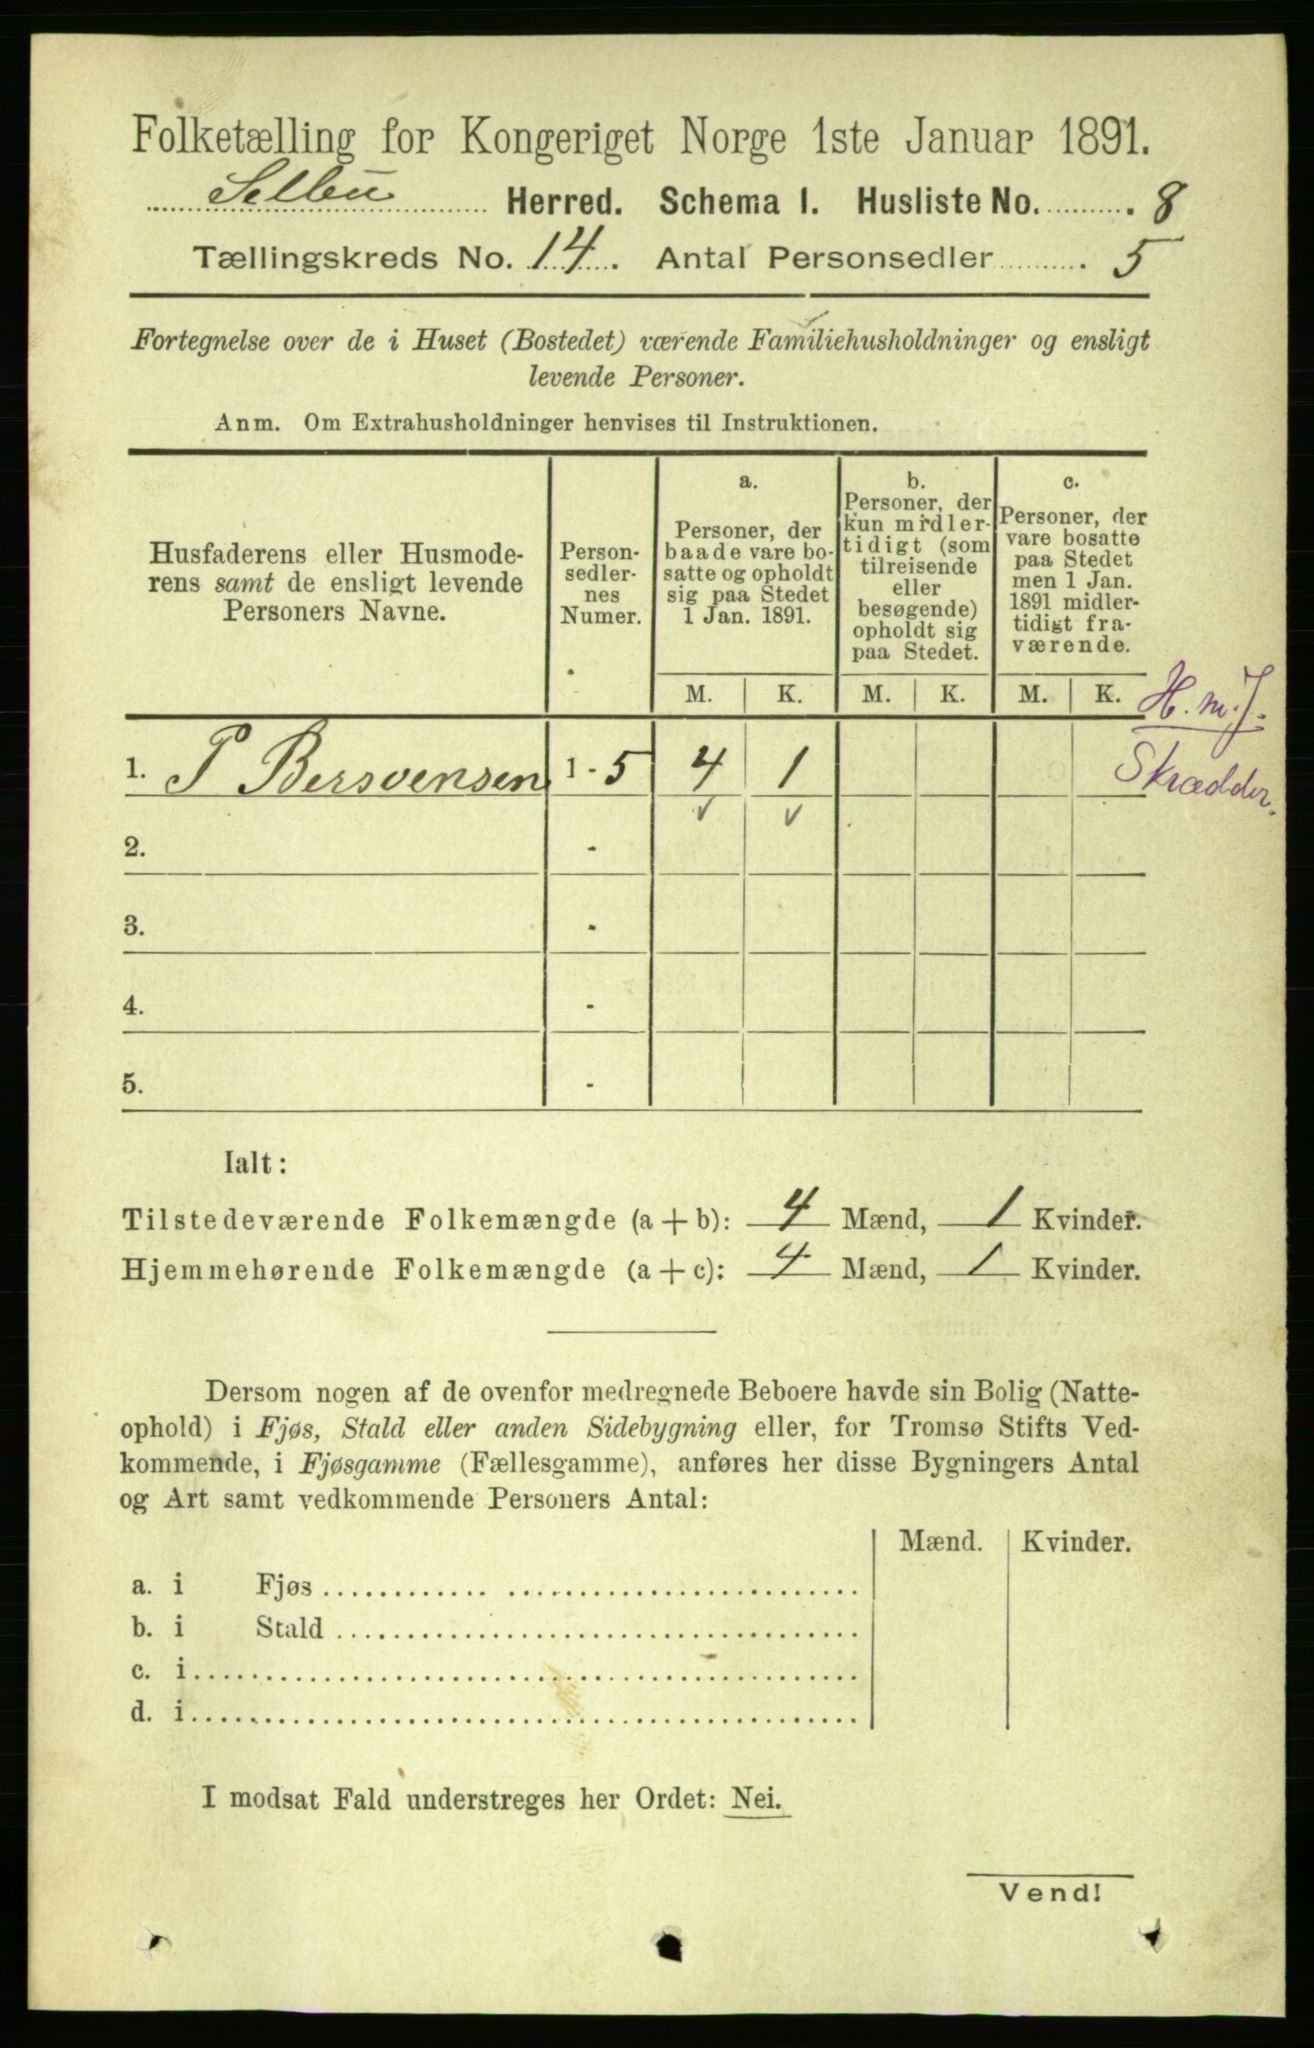 Folketælling for Kongeriget Norge 1ste Januar 1891.
Selbu Herred. Schema I. Husliste No. 8
Tællingskreds No. 14. Antal Personsedler 5
Fortegnelse over de i Huset (Bostedet) værende Familiehusholdninger og ensligt
levende Personer.
Anm. Om Extrahusholdninger henvises til Instruktionen.
Husfaderens eller Husmode-
rens samt de ensligt levende
Personers Navne.
Person-
sedler-
nes
Numer.
a.
Personer, der
baade vare bo-
satte og opholdt
sig paa Stedet
1 Jan. 1891.
b.
Personer, der
kun midler-
tidigt (som
tilreisende
eller
besøgende)
opholdt sig
paa Stedet.
c.
Personer, der
vare bosatte
paa Stedet
men 1 Jan.
1891 midler-
tidigt fra-
værende.
M. K. M. K. M. K.
H. m. J.
1. P Bersvensen 1 - 5 4 1
Skrædder.
2. -
3. -
4. -
5. -
Ialt:
Tilstedeværende Folkemængde (a + b): 4 Mænd, 1 Kvinder.
Hjemmehørende Folkemængde (a + c): 4 Mænd, 1 Kvinder.
Dersom nogen af de ovenfor medregnede Beboere havde sin Bolig (Natte-
ophold) i Fjøs, Stald eller anden Sidebygning eller, for Tromsø Stifts Ved-
kommende, i Fjøsgamme (Fællesgamme), anføres her disse Bygningers Antal
og Art samt vedkommende Personers Antal:
Mænd. Kvinder.
a. i Fjøs
b. i Stald
c. i
d. i
I modsat Fald understreges her Ordet: Nei.
Vend!